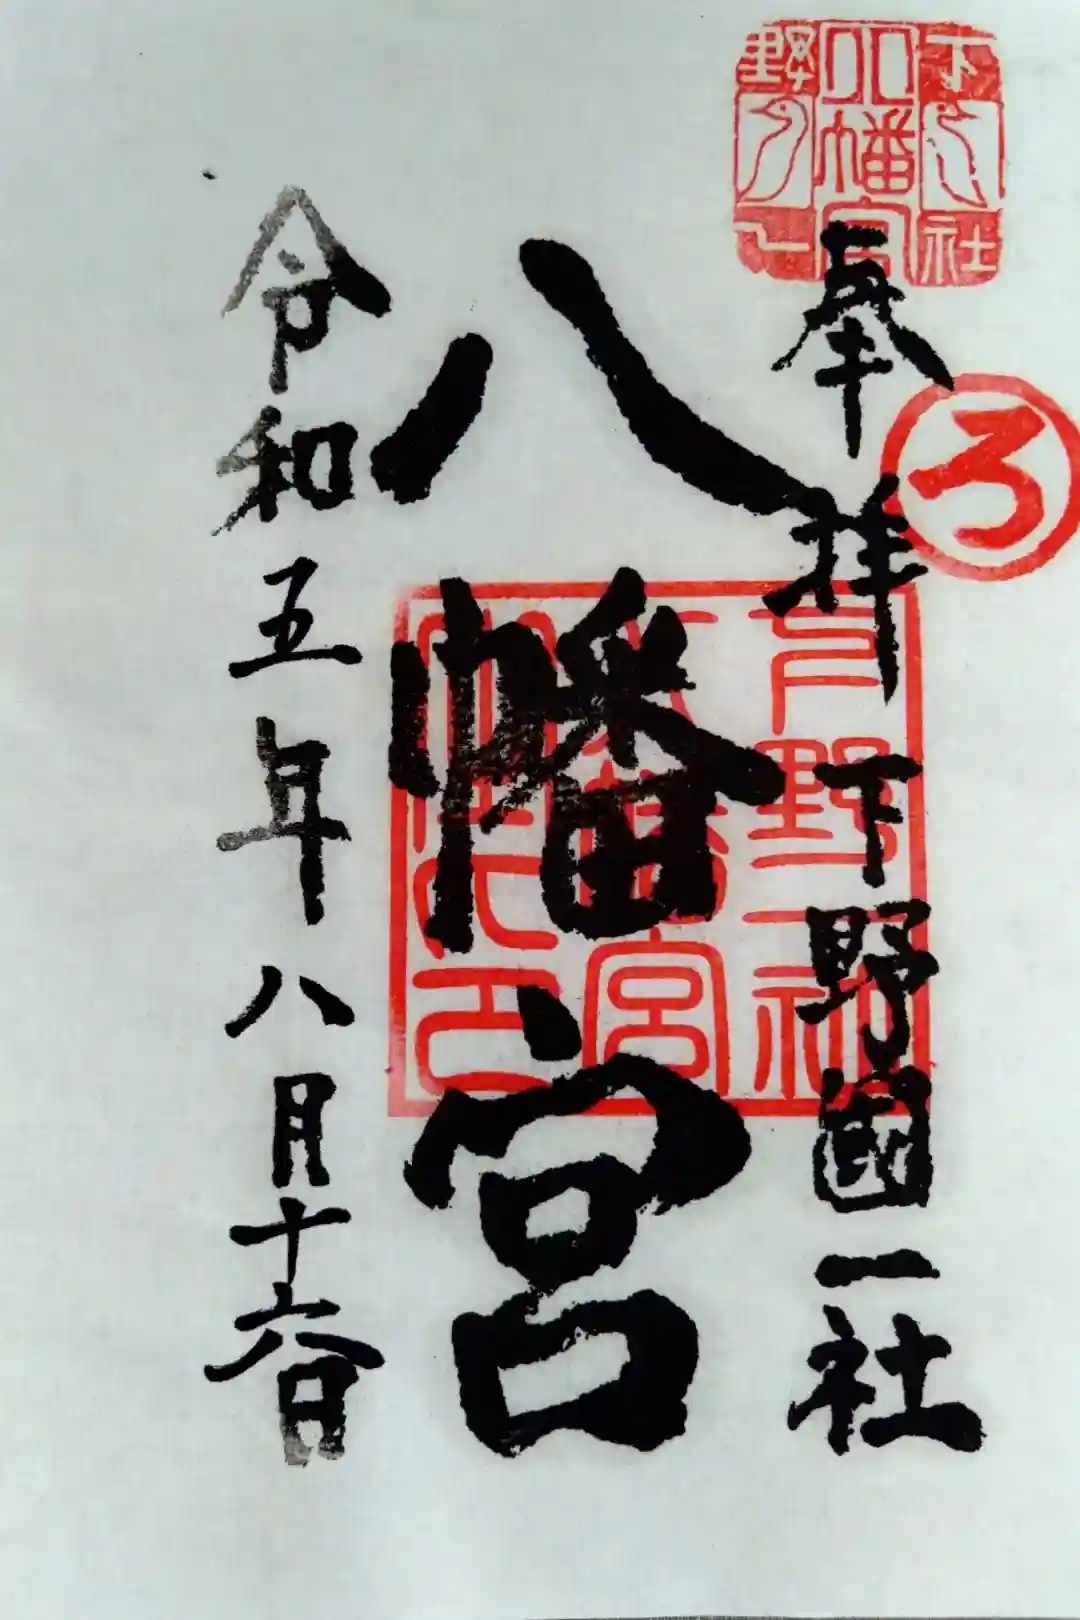 奉拝下野國一社
八幡宮
令和五年八月十六日
下野一社
八幡宮
ろ
下野一社
八幡宮